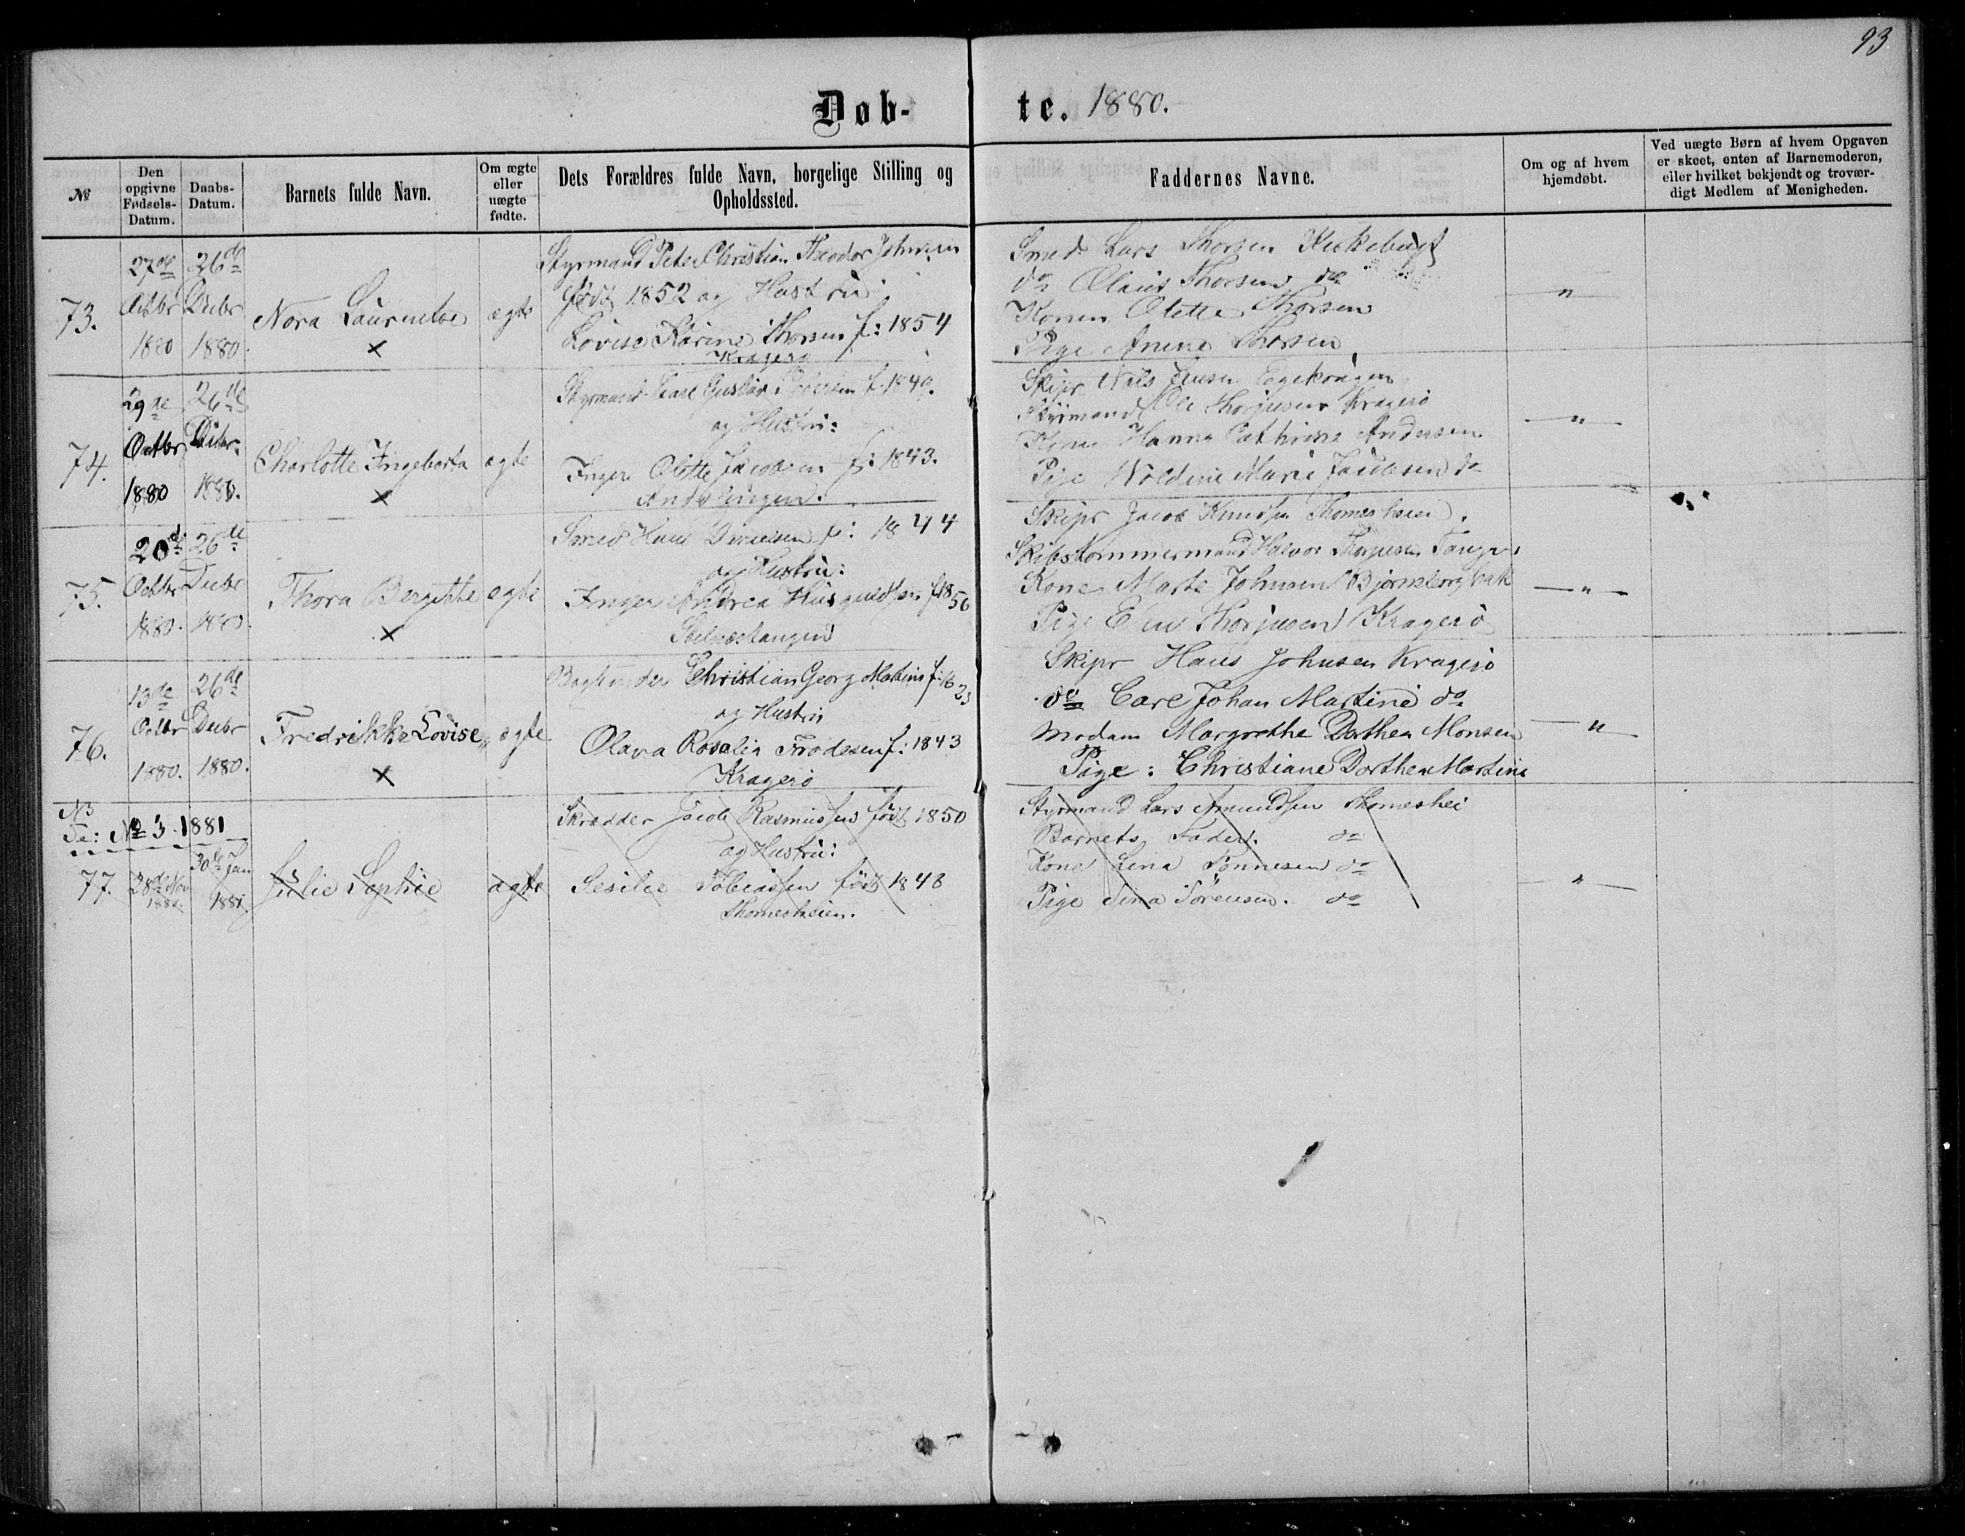 93
Døb- te. 1880.
№
Den opgivne Fødsels-Datum.
Daabs-Datum.
Barnets fulde Navn.
Om ægte eller uægte fødte.
Dets Forældres fulde Navn, borgelige Stilling og Opholdssted.
Faddernes Navne.
Om og af hvem hjemdøbt.
Ved uægte Børn af hvem Opgaven er skeet, enten af Barnemoderen, eller hvilket bekjendt og troværdigt Medlem af Menigheden.
73.
27de Octbr 1880
26de Decbr 1880.
Nora
×
ægte
Styrmand Peter Christian Theodor Johnsen
født 1852 og Hustru
Lovise Karine Thorsen f: 1854
Kragerø
Smed Lars Thorsen Kirkebugt
do Olaus Thorsen do
Konen Olette Thorsen
Pige Anene Thorsen
"
74.
29de Octbr 1880
26de Decbr. 1880.
Charlotte Ingeborta
×
ægte
Styrmand Carl Gustav f. 1849.
og Hustru:
Inger Olette Jacobsen f: 1843.
Skipr Nils Jensen
Styrmand Ole Thorjusen Kragerø
Kone Hanna Cathrine Andersen
Pige Woldine Marie Jacobsen do
"
75.
20de Octbr 1880.
26de Decbr 1880.
Thora Bergitte
×
ægte
Smed Hans f: 1844
og Hustru:
Inger Andrea f 1856
Skipr Jacob Knudsen
Skibstømmermand Halvor Thorjusen
Kone Marte Johnsen
Pige Thorjusen Kragerø
"
76.
13de Octbr 1880.
26de Decbr 1880.
Fredrikke Lovise
×
ægte
Christian Georg Martini f: 1823
og Hustru
Olava Rosalia Frodesen f: 1843
Kragerø
Skipr Hans Johnsen Kragerø
do Carl Johan Martini do
Madam Margrethe Dorthea Monsen
Pige: Christiane Dorthea Martini
"
NB
Se: № 3 1881
77.
28de Nov 1880
30de Jan 1881.
Julie Sophie
ægte
Skrædder Jacob Rasmussen født 1850
og Hustru:
Sesilie Tobiassen født 1848
Thomesheien.
Styrmand Lars Amundsen Thomeshei
Barnets Fader. do
Kone Lina Tønnesen do
Pige Sina Sørensen. do
"